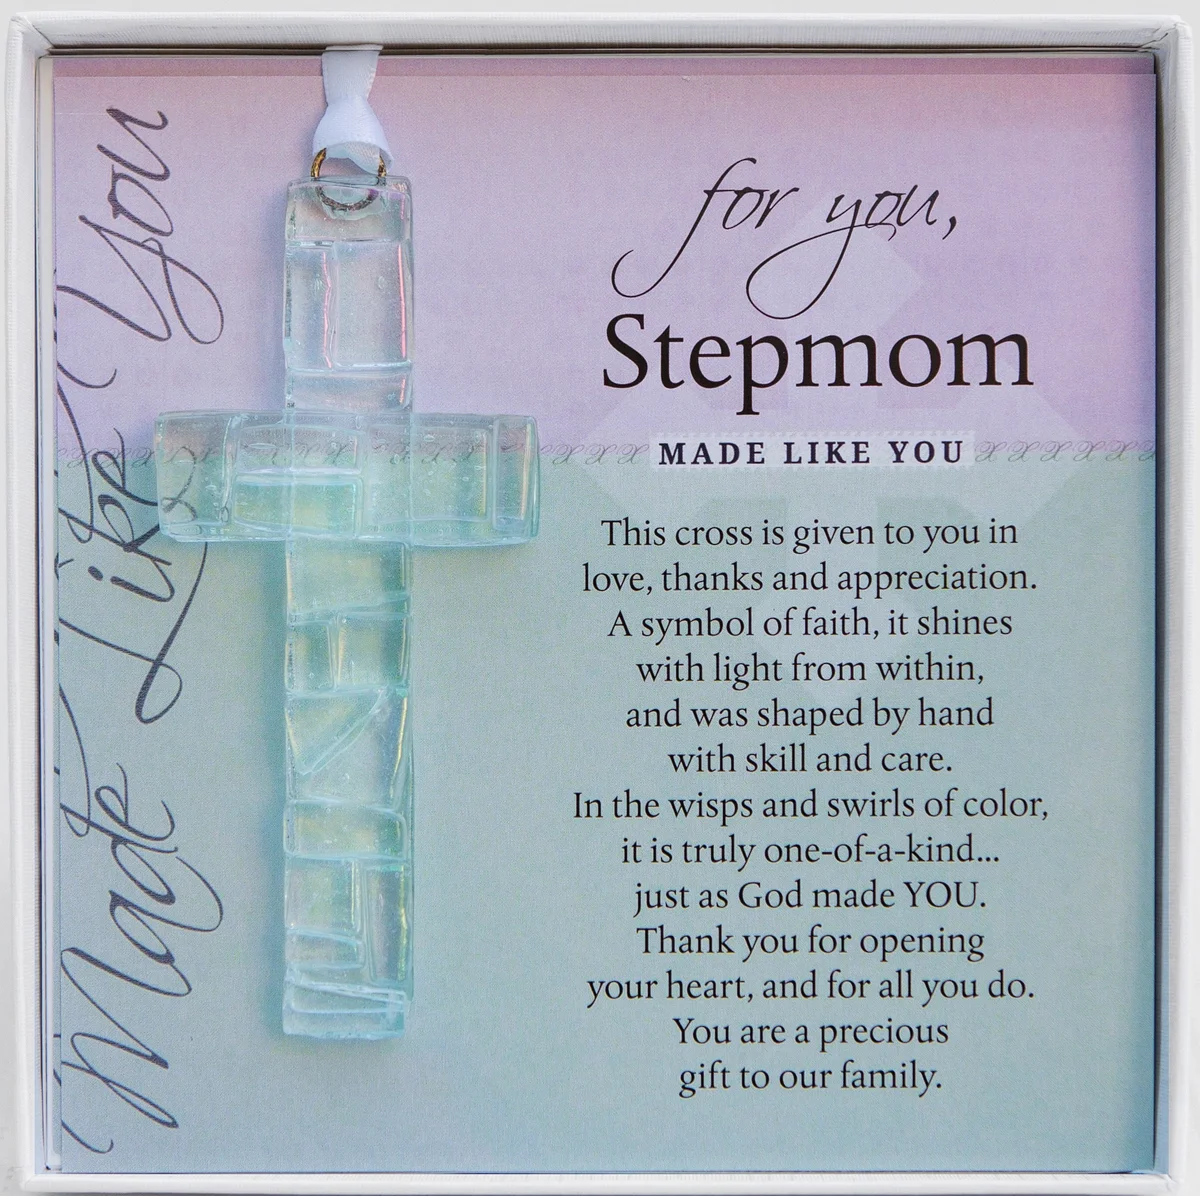 Made Like You
for you,
Stepmom
MADE LIKE YOU
This cross is given to you in
love, thanks and appreciation.
A symbol of faith, it shines
with light from within,
and was shaped by hand
with skill and care.
In the wisps and swirls of color,
it is truly one-of-a-kind...
just as God made YOU.
Thank you for opening
your heart, and for all you do.
You are a precious
gift to our family.